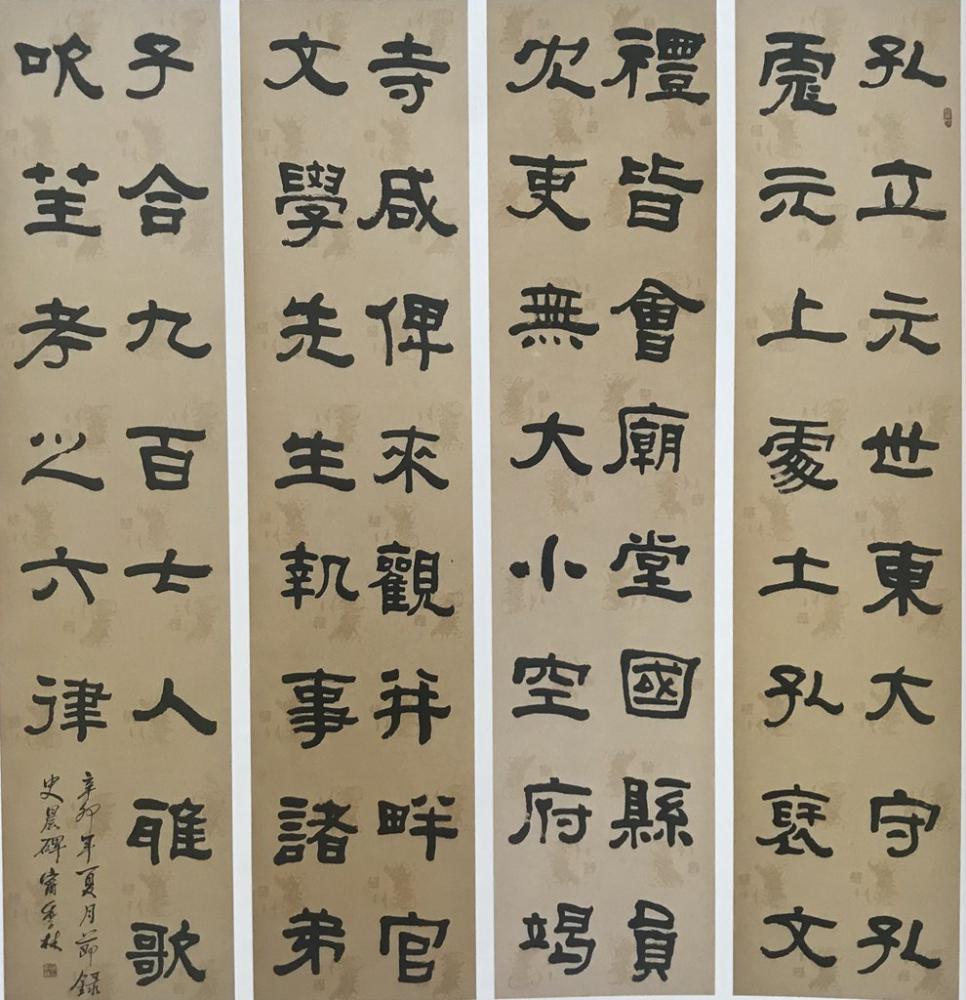 孔立元世東大守孔
彪元上處土孔褒文
禮皆會廟堂國縣員
冗吏無大小空府竭
寺咸俾來觀并畔官
文學先生執事諸弟
子合九百七人雅歌
吹笙考之六律
辛卯年夏月節錄
史晨碑